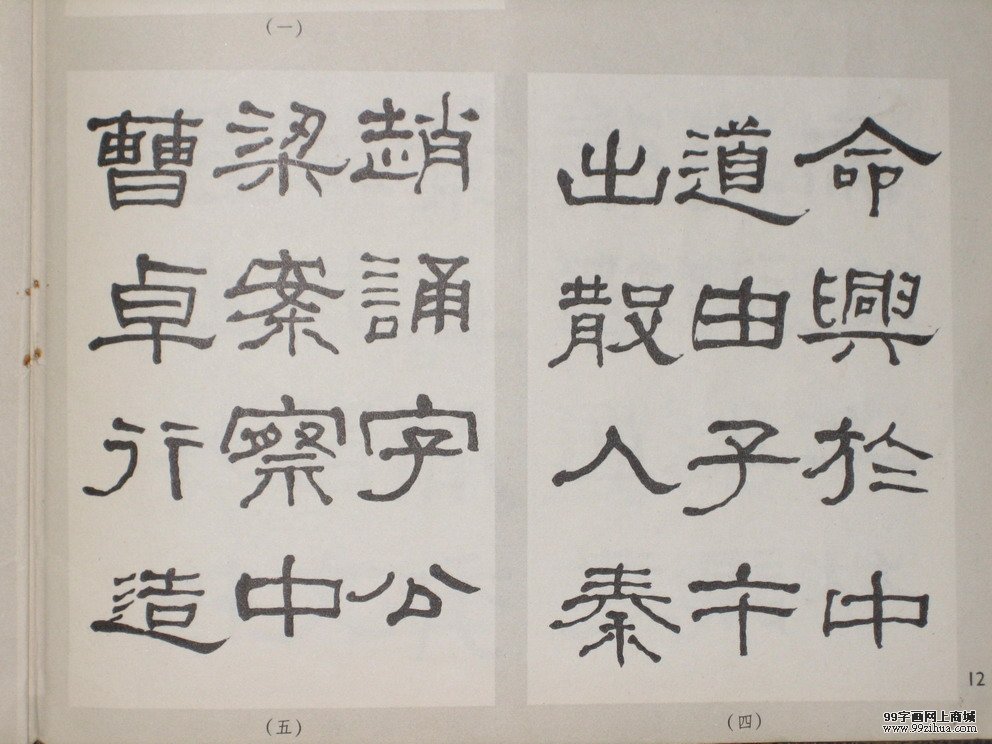 (一)
命興於中
道由子午
出散入秦
(四)
趙誦字公
梁案察中
曹卓行造
(五)
12
99字画网上商城
www.99zihua.com